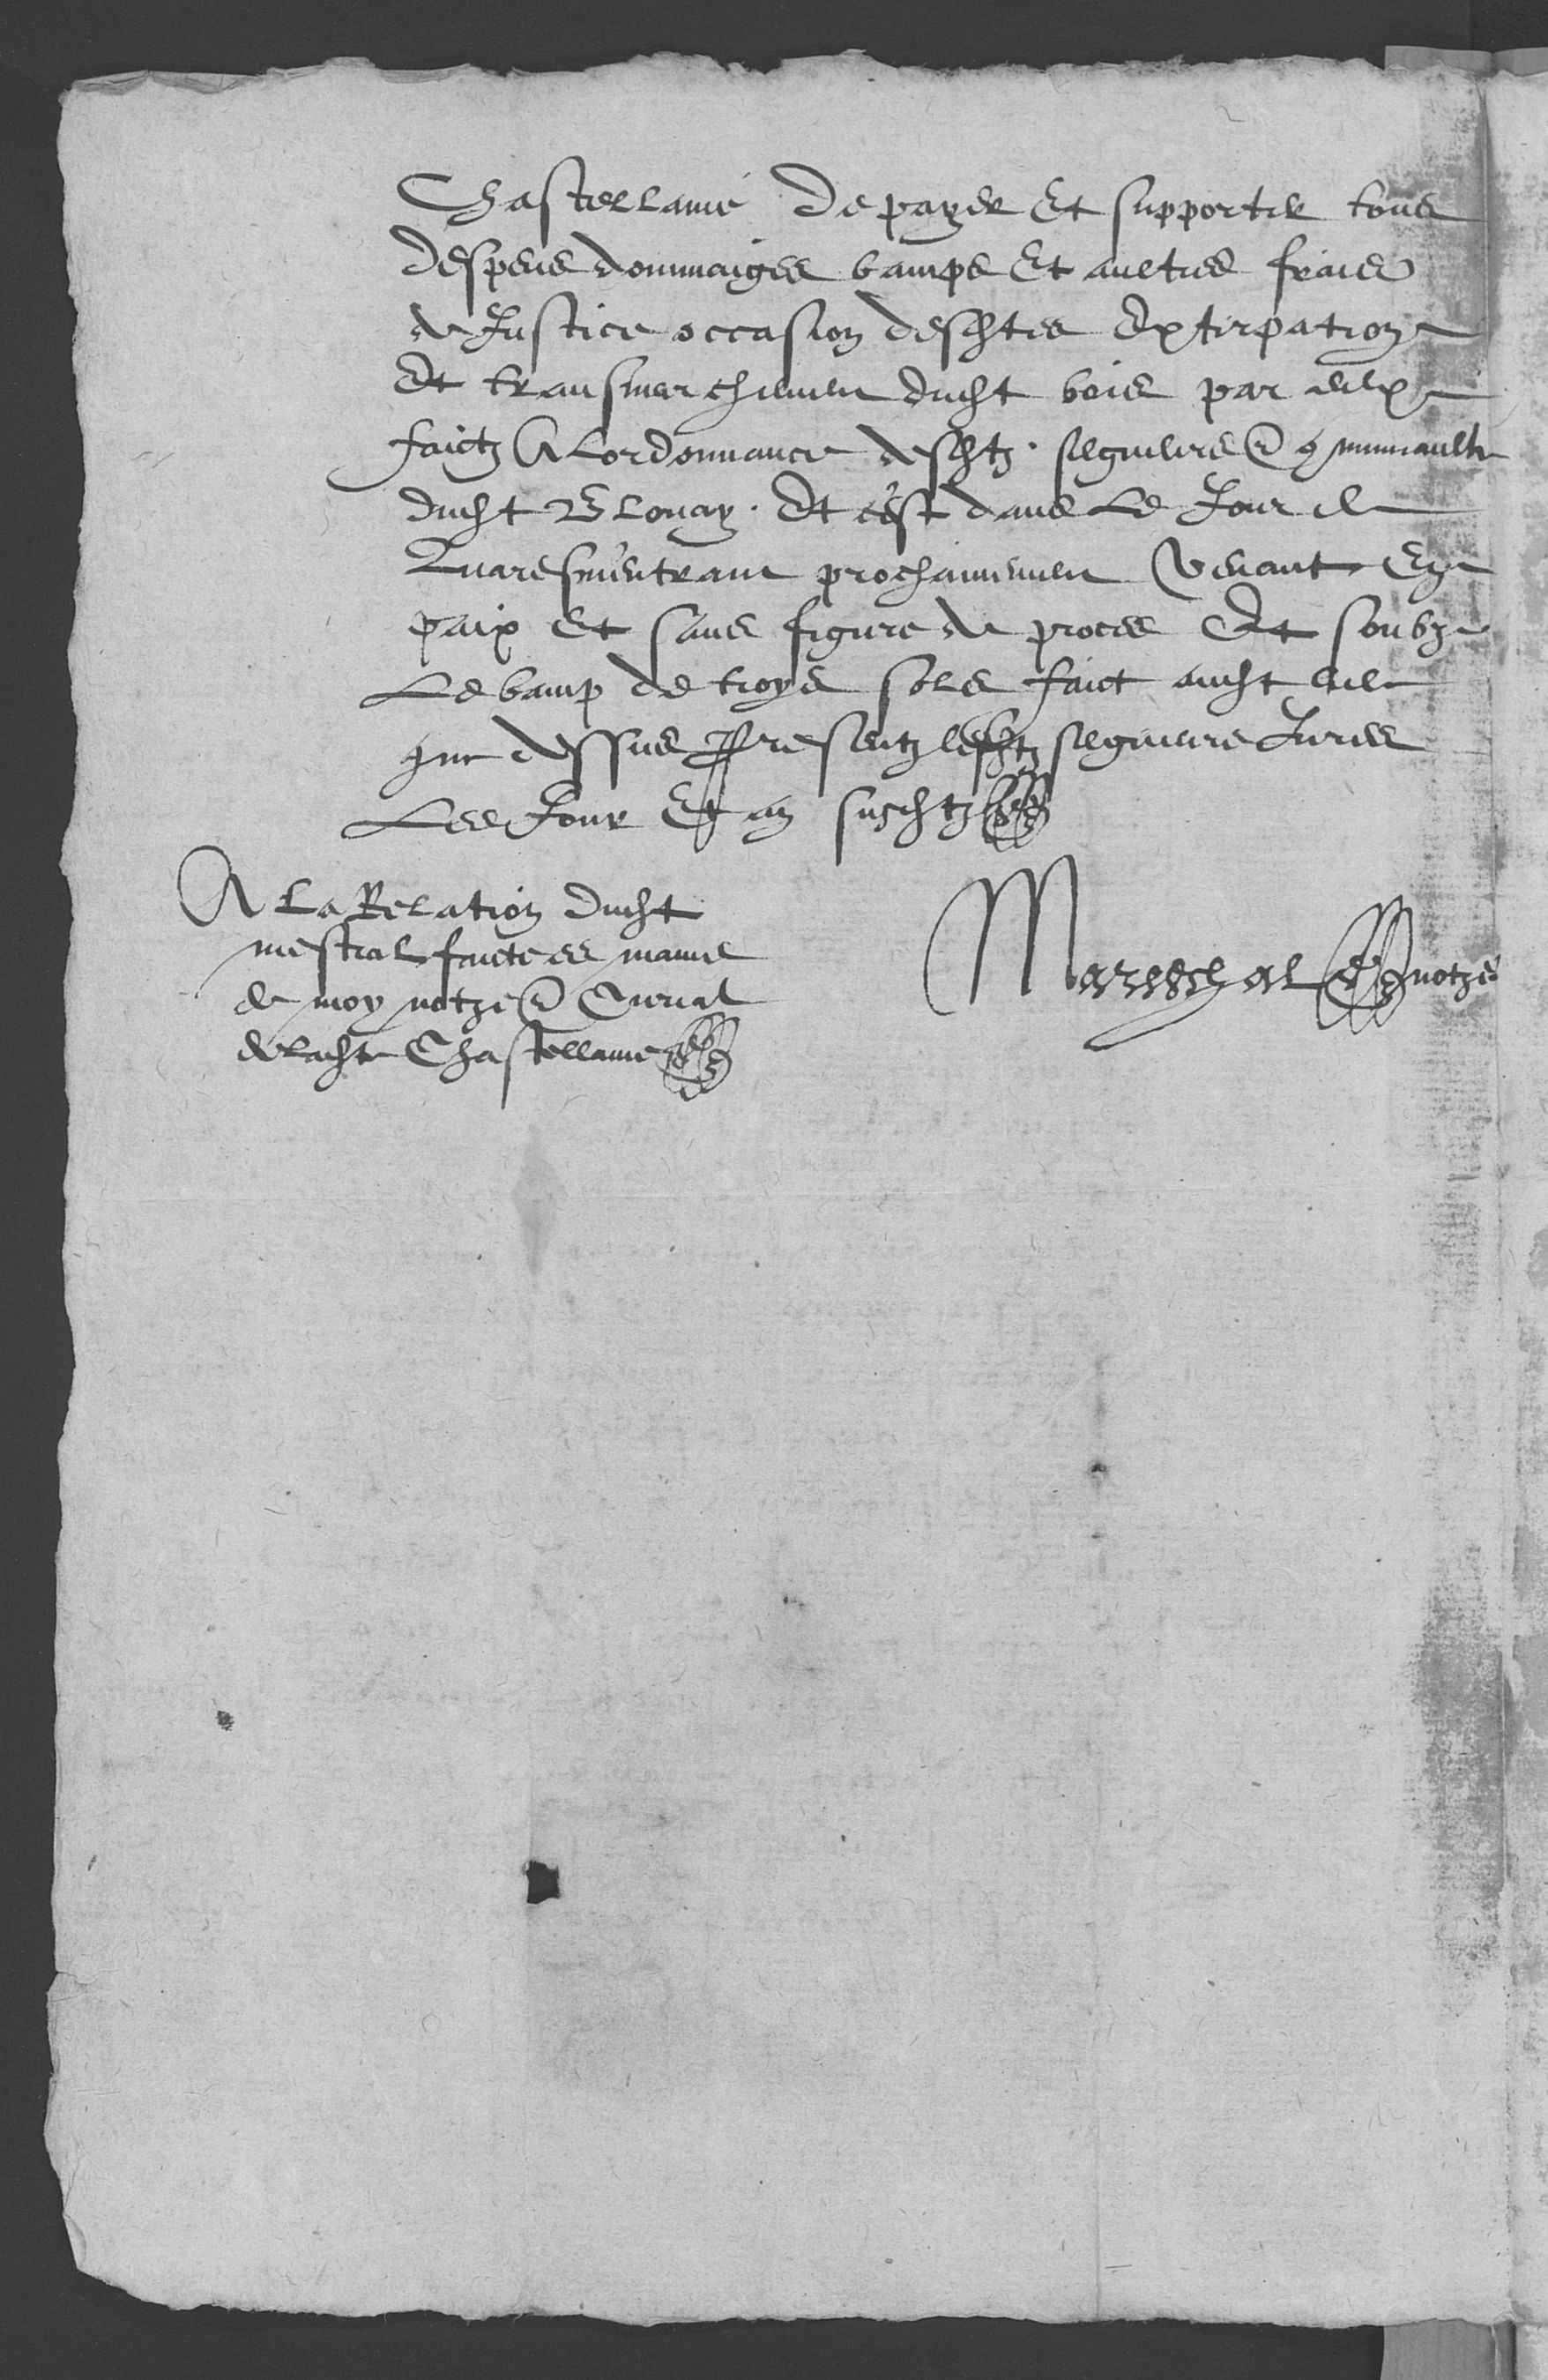 Chastellanie de payer et supporter tous
despens dommaiges bamps et aultres frais
de Justice occasion desdites extirpation
et transmarchement dudit bois par eulx
faictz A lordonnance desditz segneurs &
dudit Blonay. Et c'est dans le Jour de
Quaresmentrant prochainement venant en
paix et sans figure de proces Et soubz
Le bamp de troys solz faict audit
que dessus Presentz lesditz segneurs Jures
Les Jour et an susditz
A La Relation dudit
mestral faicte es mains
de moy notre & Curial
de ladite Chastellanie
Mareschal notre